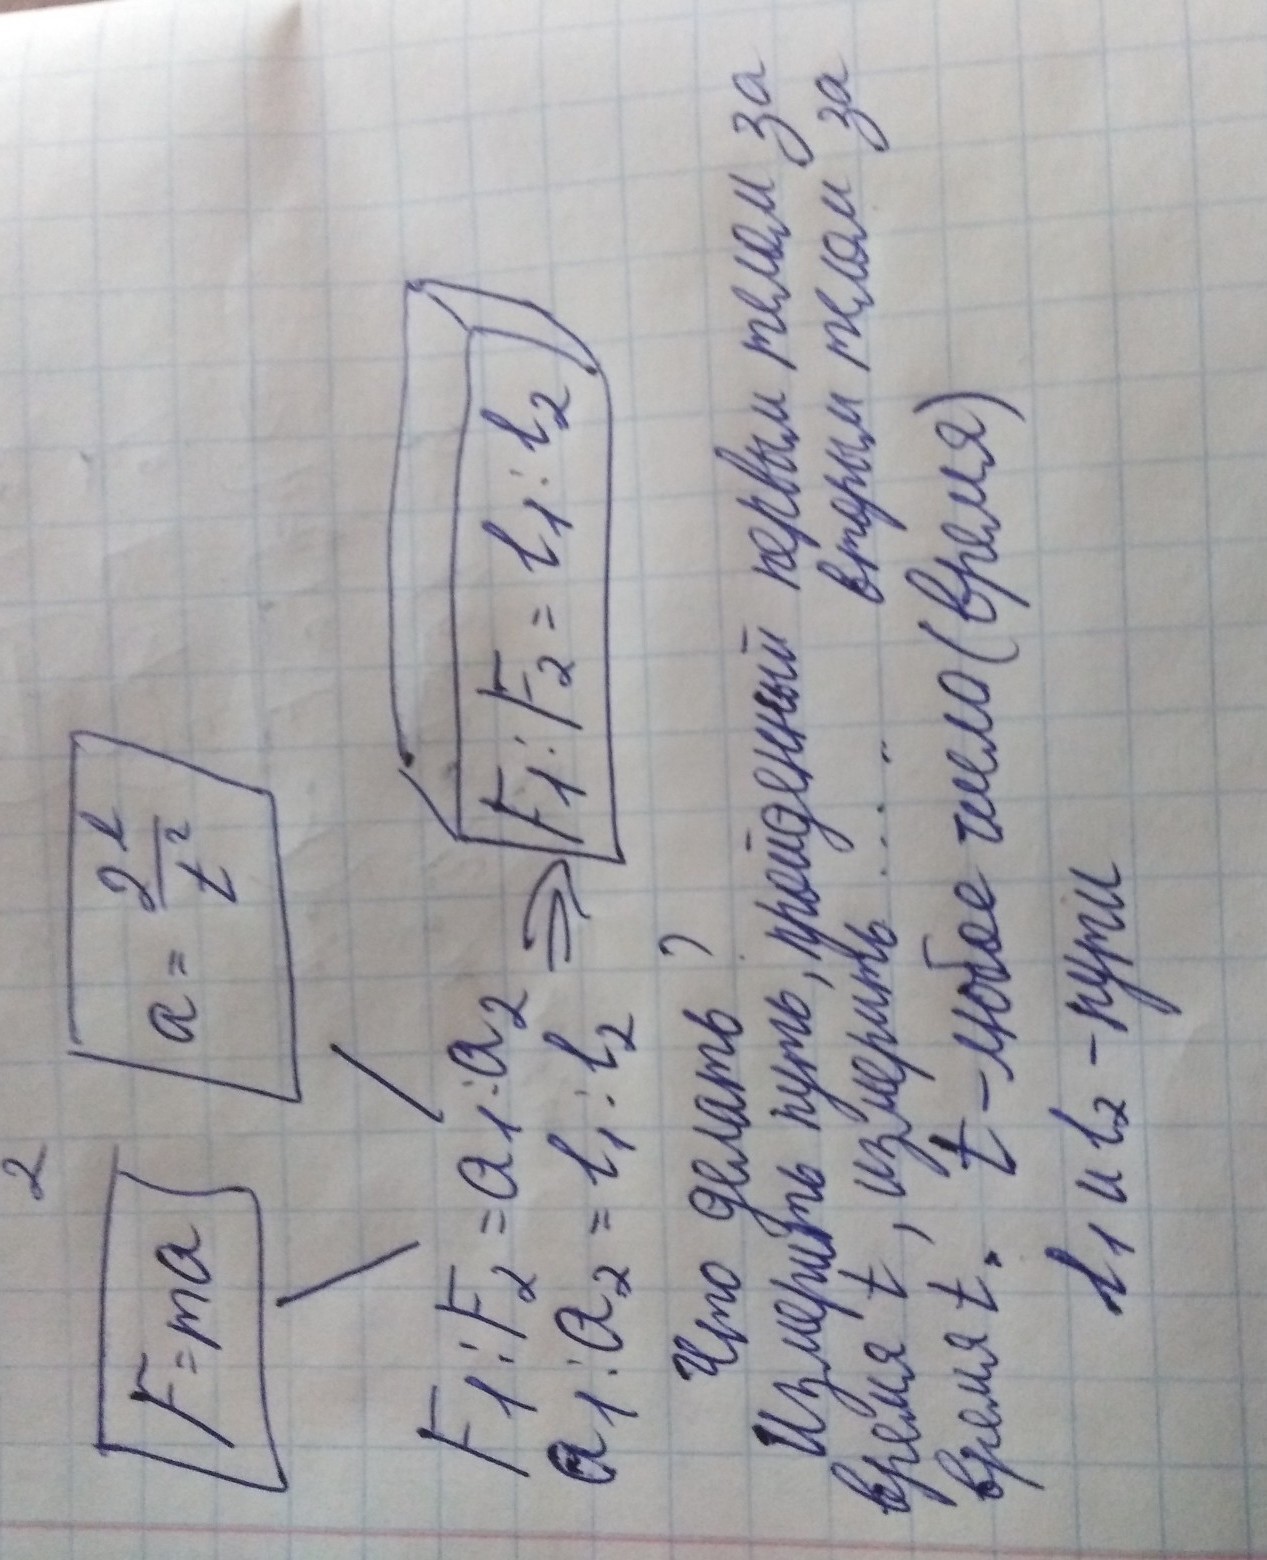 2
F = ma
a = 2l/t²
F₁ : F₂ = a₁ : a₂
a₁ : a₂ = l₁ : l₂
⇒ F₁ : F₂ = l₁ : l₂
Что делать?
Измерить путь, пройденный первым телом за
время t, измерить .... " вторым телом за
время t. t - любое число (время)
l₁ и l₂ - пути